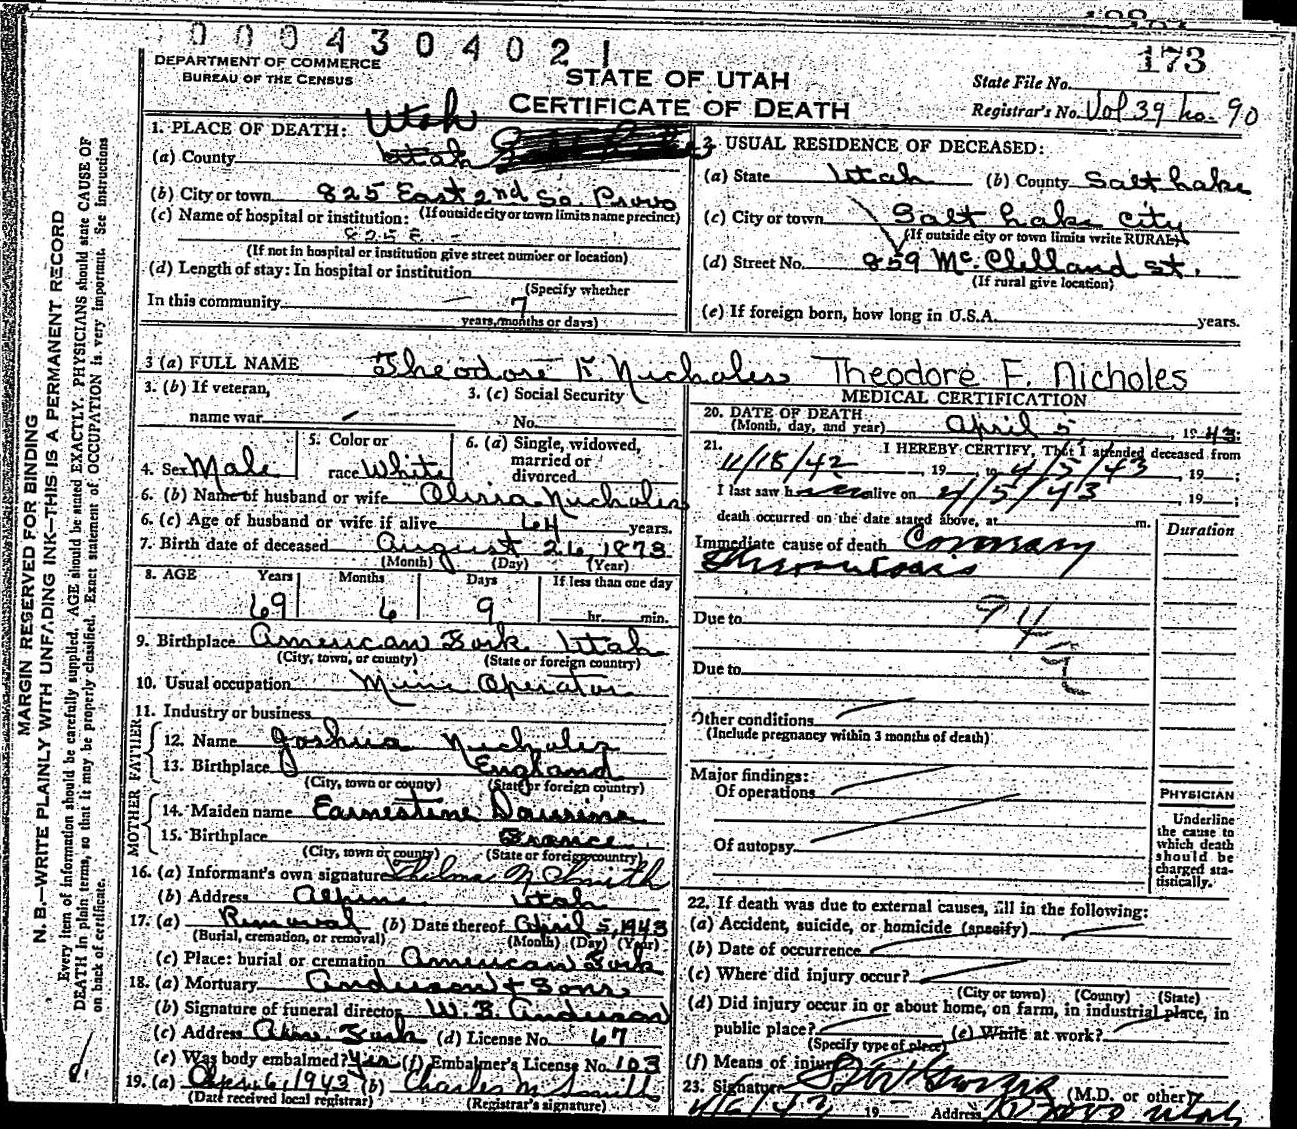 0 0 0 4 3 0 4 0 2 1
173
DEPARTMENT OF COMMERCE
BUREAU OF THE CENSUS
STATE OF UTAH
CERTIFICATE OF DEATH
State File No.
Registrar's No. Vol 39 no. 90
MARGIN RESERVED FOR BINDING
N. B.—WRITE PLAINLY WITH UNFADING INK—THIS IS A PERMANENT RECORD
Every item of information should be carefully supplied. AGE should be stated EXACTLY. PHYSICIANS should state CAUSE OF
DEATH in plain terms, so that it may be properly classified. Exact statement of OCCUPATION is very important. See instructions
on back of certificate.
1. PLACE OF DEATH: Utah
(a) County Utah
(b) City or town 825 East 2nd So. Provo
(If outside city or town limits name precinct)
(c) Name of hospital or institution:
825 E
(If not in hospital or institution give street number or location)
(d) Length of stay: In hospital or institution
(Specify whether
In this community — 7
years, months or days)
2. USUAL RESIDENCE OF DECEASED:
(a) State Utah (b) County Salt Lake
(c) City or town Salt Lake City
(If outside city or town limits write RURAL)
(d) Street No. 859 Mc. Clelland St.
(If rural give location)
(e) If foreign born, how long in U.S.A. years.
3 (a) FULL NAME Theodore F. Nicholes Theodore F. Nicholes
3. (b) If veteran,
name war —
3. (c) Social Security
No.
4. Sex Male
5. Color or
race White
6. (a) Single, widowed,
married or
divorced
6. (b) Name of husband or wife Nicholes
6. (c) Age of husband or wife if alive 64 years.
7. Birth date of deceased August 26, 1873
(Month) (Day) (Year)
8. AGE Years Months Days If less than one day
69 6 9 hr. min.
9. Birthplace American Fork Utah
(City, town, or county) (State or foreign country)
10. Usual occupation Mine Operator
11. Industry or business
FATHER
12. Name Joshua Nicholes
13. Birthplace England
(City, town or county) (State or foreign country)
MOTHER
14. Maiden name Earnestine
15. Birthplace France
(City, town or county) (State or foreign country)
16. (a) Informant's own signature Thelma N. Smith
(b) Address Alpine Utah
17. (a) Removal (b) Date thereof April 5, 1943
(Burial, cremation, or removal) (Month) (Day) (Year)
(c) Place: burial or cremation American Fork
18. (a) Mortuary Anderson & Sons
(b) Signature of funeral director W. B. Anderson
(c) Address Am. Fork (d) License No. 67
(e) Was body embalmed? Yes (f) Embalmer's License No. 103
19. (a) Apr. 6, 1943 (b) Charles M Smith
(Date received local registrar) (Registrar's signature)
MEDICAL CERTIFICATION
20. DATE OF DEATH
(Month, day, and year) April 5, 1943:
21. I HEREBY CERTIFY, That I attended deceased from
11/18/42, 19 to 4/5/43, 19 ;
I last saw h alive on 4/5/43, 19 ;
death occurred on the date stated above, at m.
Duration
Immediate cause of death Coronary
Thrombosis
Due to
94
Due to
Other conditions
(Include pregnancy within 3 months of death)
Major findings:
Of operations
Of autopsy
PHYSICIAN
Underline
the cause to
which death
should be
charged sta-
tistically.
22. If death was due to external causes, fill in the following:
(a) Accident, suicide, or homicide (specify)
(b) Date of occurrence
(c) Where did injury occur?
(City or town) (County) (State)
(d) Did injury occur in or about home, on farm, in industrial place, in
public place? (e) While at work?
(Specify type of place)
(f) Means of injury
23. Signature (M.D. or other)
4/6/43 19 Address Provo Utah